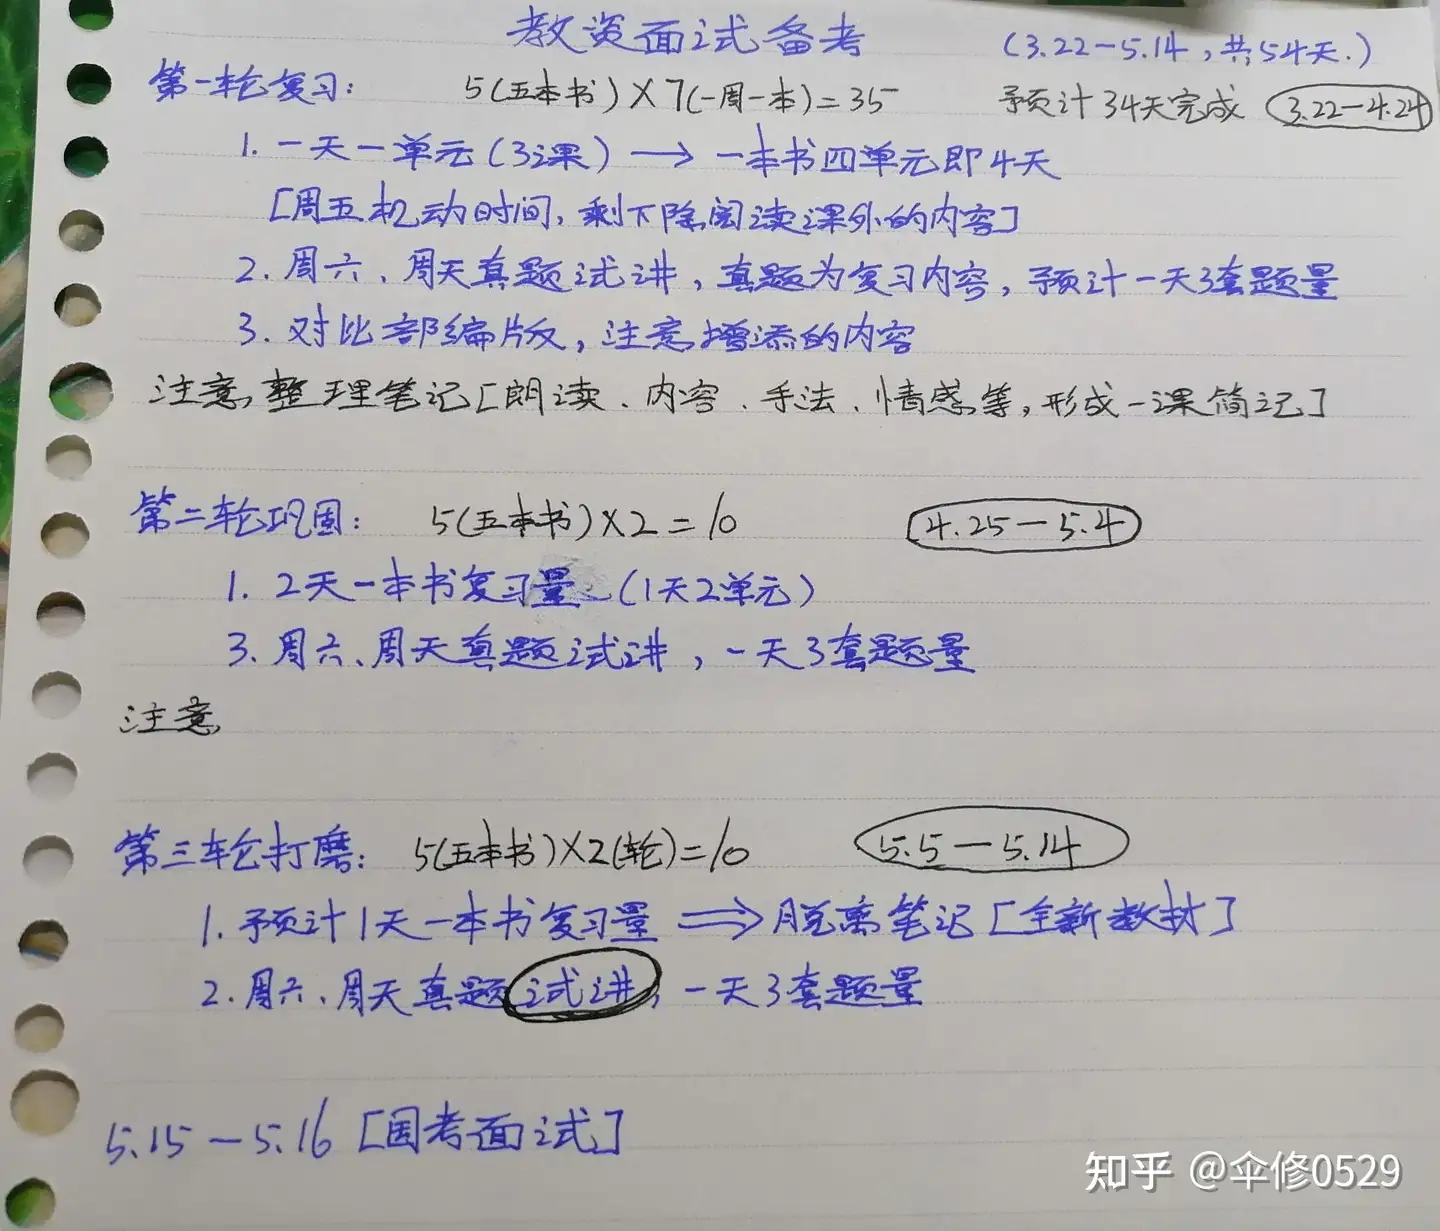 教资面试备考 (3.22-5.14,共54天.)
第一轮复习: 5(五本书)×7(一周一本)=35 予预计34天完成 3.22-4.24
1. 一天一单元(3课) → 一本书四单元即4天
[周五机动时间,剩下除阅读课外的内容]
2. 周六、周天真题试讲,真题为复习内容,预计一天3套题量
3. 对比部编版,注意增添的内容
注意,整理笔记[朗读、内容、手法、情感等,形成一课简记]
第二轮巩固: 5(五本书)×2=10 4.25-5.4
1. 2天一本书复习量 (1天2单元)
3. 周六、周天真题试讲,一天3套题量
注意
第三轮打磨: 5(五本书)×2(轮)=10 5.5-5.14
1. 预计1天一本书复习量 ⇒ 脱离笔记[全新教材]
2. 周六、周天真题试讲,一天3套题量
5.15-5.16[国考面试]
知乎 @伞修0529